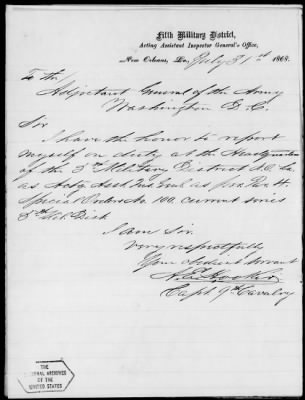 Fifth Military District,
Acting Assistant Inspector General's Office,
New Orleans, La., July 31st 1868.
To the
Adjutant General of the Army
Washington D.C.
Sir
I have the honor to report
myself on duty at the Headquarters
of the 5th Military District N.O. La.
as Actg. Asst. Ins. Genl. as per Par. 4.
Special Orders No. 100. current series
5th Mil. Dist.
I am Sir.
very respectfully
Your obedient servant
A. E. Hooker
Capt. 9th Cavalry
THE
NATIONAL ARCHIVES
OF THE
UNITED STATES